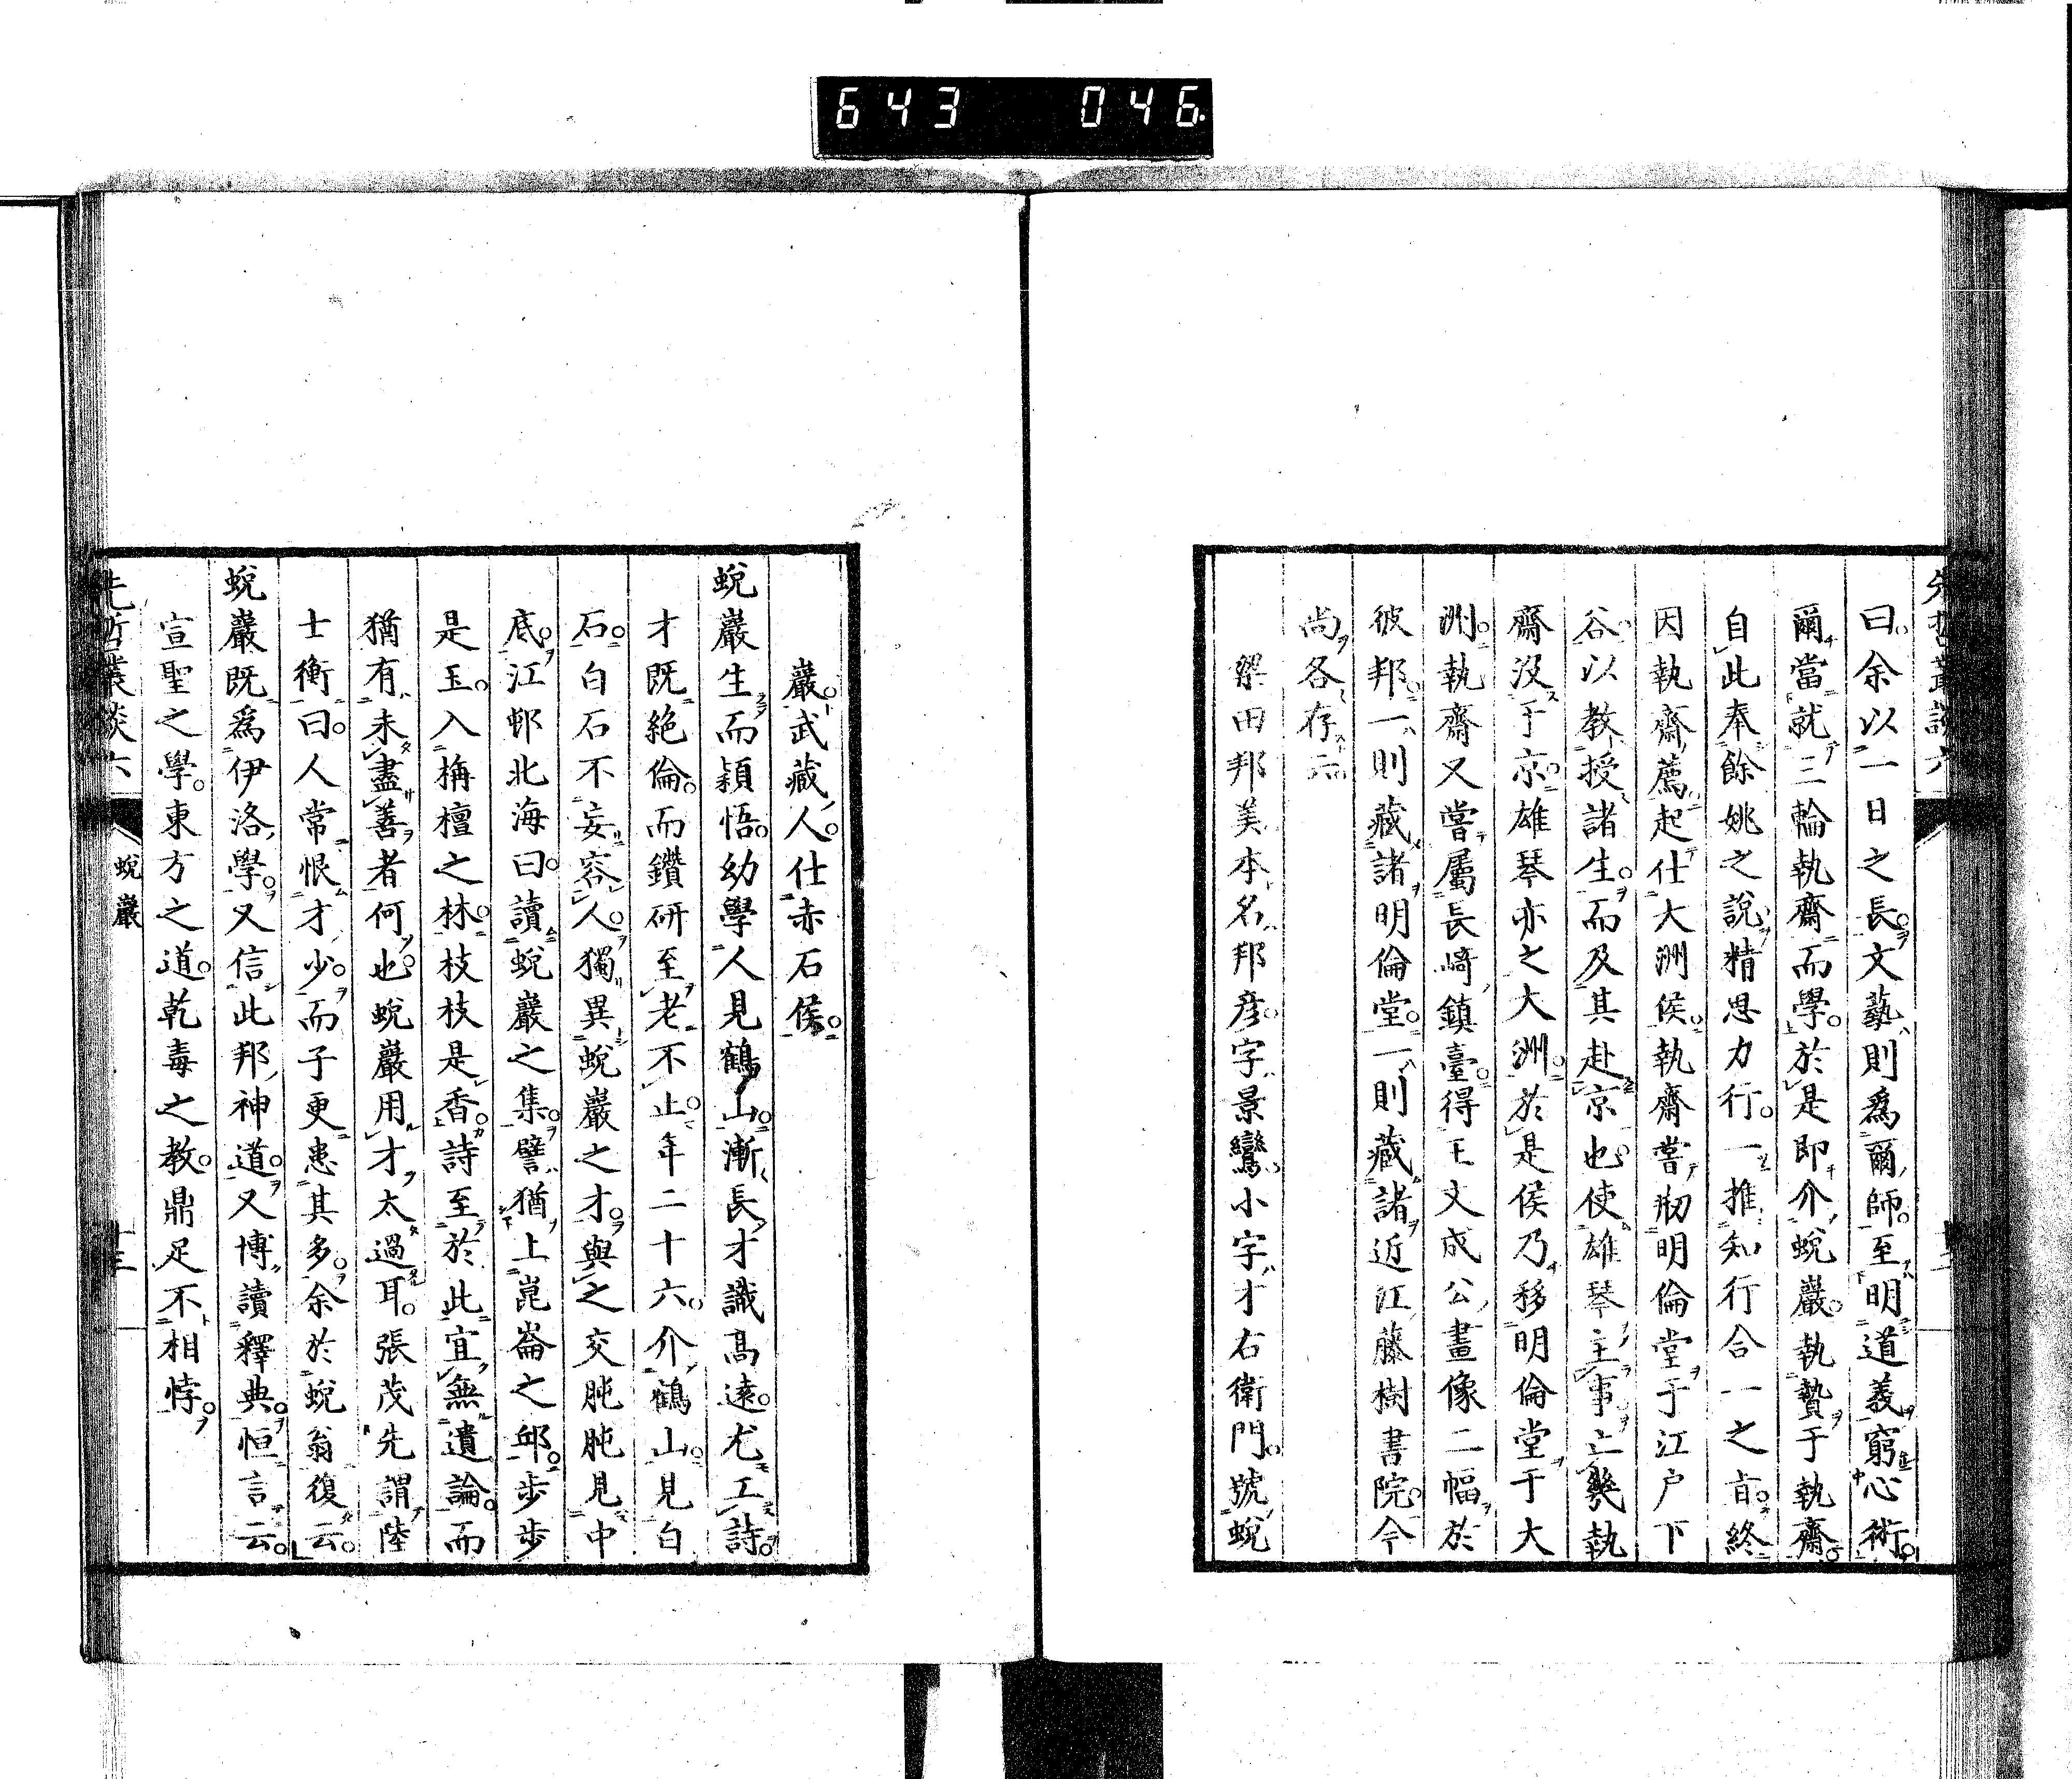 643 046
曰余以一日之長文藝則爲爾師至明道義窮心術
爾當就三輪執齋而學於是即介蛻巖執贄于執齋
自此奉餘姚之說精思力行一推知行合一之旨終
因執齋薦起仕大洲侯執齋嘗剏明倫堂于江户下
谷以教授諸生而及其赴京也使雄琴主事亡幾執
齋沒于京雄琴亦之大洲於是侯乃移明倫堂于大
洲執齋又嘗屬長﨑鎮臺得王文成公畫像二幅於
彼邦一則藏諸明倫堂一則藏諸近江藤樹書院今
尚各存云
梁田邦美本名邦彦字景鸞小字才右衛門號蛻
巖武藏人仕赤石侯
蛻巖生而穎悟幼學人見鶴山漸長才識高遠尤工詩
才既絕倫而鑽研至老不止年二十六介鶴山見白
石白石不妄容人獨異蛻巖之才與之交肫肫見中
底江邨北海曰讀蛻巖之集譬猶上崑崙之邱步步
是玉入栴檀之林枝枝是香詩至於此宜無遺論而
猶有未盡善者何也蛻巖用才太過耳張茂先謂陸
士衡曰人常恨才少而子更患其多余於蛻翁復云
蛻巖既爲伊洛學又信此邦神道又博讀釋典恒言云
宣聖之學東方之道乾毒之教鼎足不相悖
先哲叢談六
蛻巖
十三